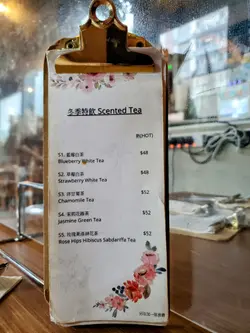 冬季特飲 Scented Tea
熱(HOT)
S1. 藍莓白茶 $48
Blueberry White Tea
S2. 草莓白茶 $48
Strawberry White Tea
S3. 洋甘菊茶 $52
Chamomile Tea
S4. 茉莉花綠茶 $52
Jasmine Green Tea
S5. 玫瑰果洛神花茶 $52
Rose Hips Hibiscus Sabdariffa Tea